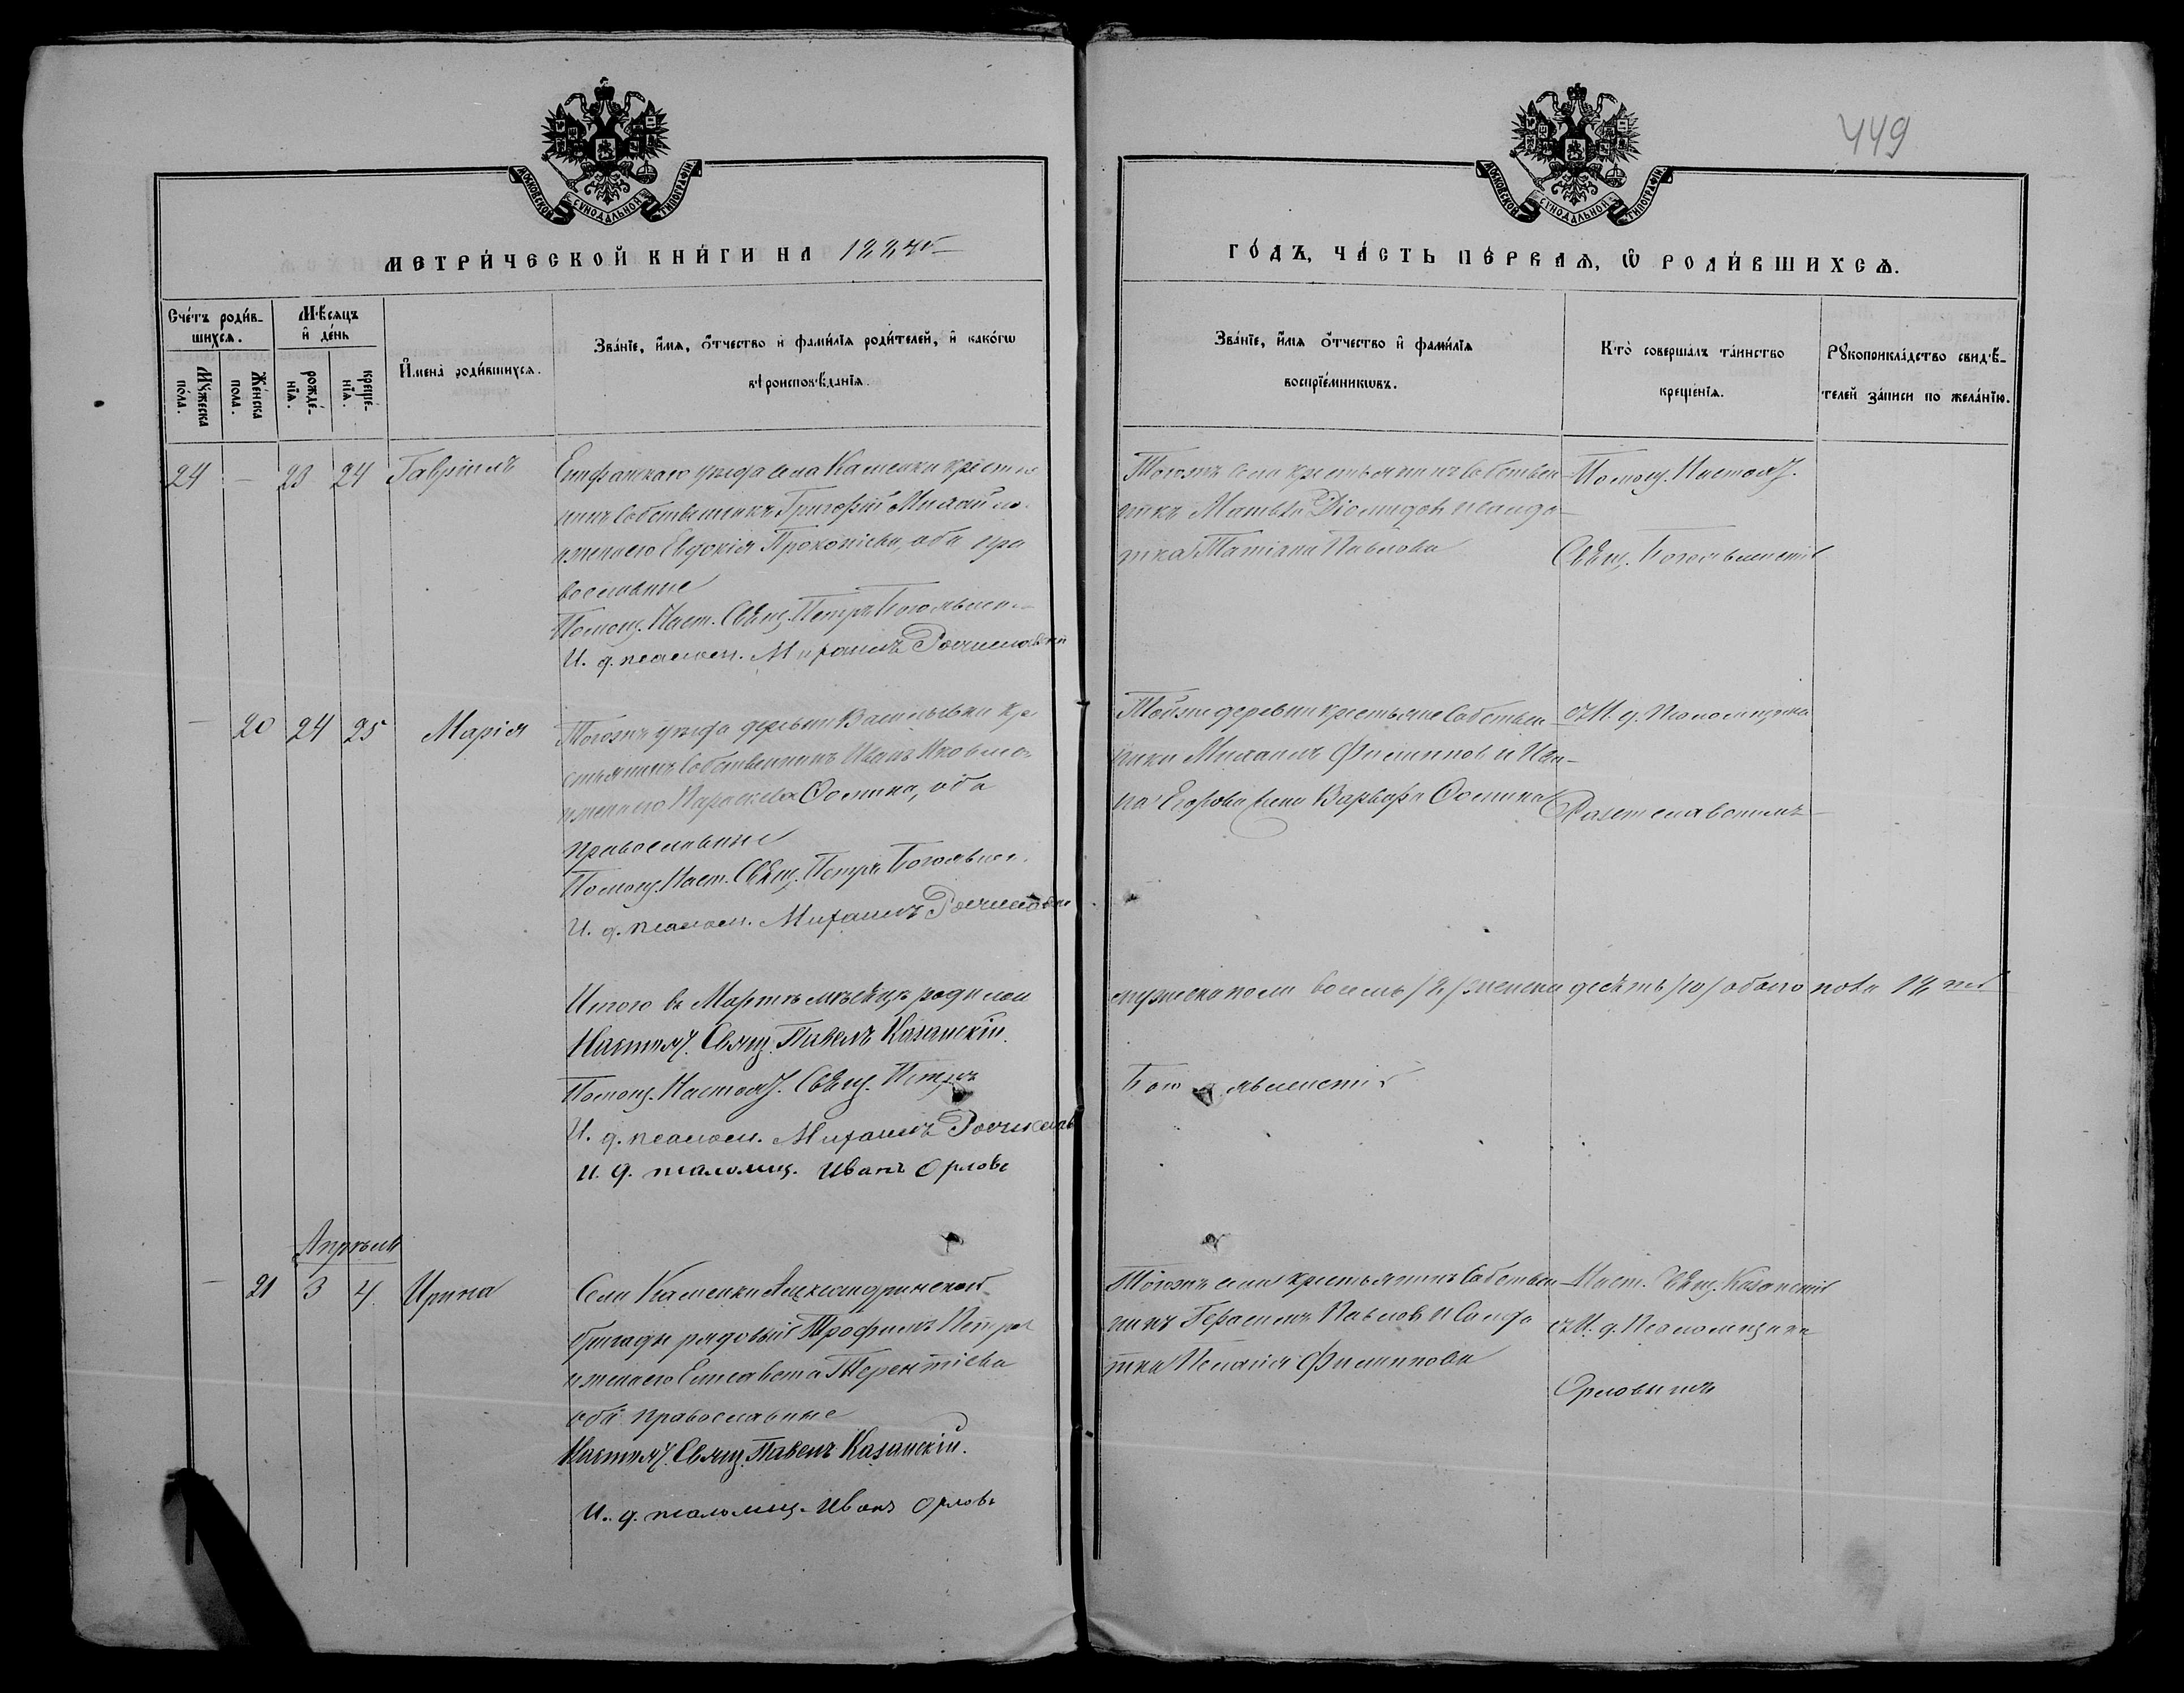 449
МОСКОВСКОЙ СѴНОДАЛЬНОЙ ТИПОГРАФІИ
МОСКОВСКОЙ СѴНОДАЛЬНОЙ ТИПОГРАФІИ
МЕТРИ́ЧЕСКОЙ КНИ́ГИ НА
ГО́ДЪ, ЧА́СТЬ ПЕ́РВАѦ, Ѡ РОДИ́ВШИХСѦ.
Сче́тъ роди́в-
шихсѧ.
Мꙋ́жеска
по́ла.
Же́нска
пола.
Мѣ́сѧцъ
и҆ де́нь
рожде́-
нїѧ.
креще́-
нїѧ.
И҆мена̀ роди́вшихсѧ.
Зва́нїе, и҆́мѧ, ѻ҆́тчество и҆ фами́лїѧ роди́телей, и҆ како́гѡ
вѣроисповѣ́данїѧ.
Зва́нїе, и҆́мѧ ѻ҆́тчество и҆ фами́лїѧ
воспрїе́мникѡвъ.
Кто̀ соверша́лъ та́инство
креще́нїѧ.
Рꙋкоприкла́дство свидѣ́-
телей за́писи по жела́нїю.
24 — 23 24 Гавріилъ
Епифанскаго уѣзда села Каменки крестья
нинъ собственникъ Григорій Михайло
и жена его Евдокія Прокопіева, оба пра
вославные
Помощ. Наст. Свящ. Петръ Богоявлен
И. д. псалом. Михаилъ
Тогожъ села крестьянинъ собствен
никъ Матвѣй Діомидовъ и солда
тка Татіана Павлова
Помощ. Настоят.
Свящ. Богоявленскій
— 20 24 25 Марія
Тогожъ уѣзда деревни Васильевки кре
стьянинъ собственникъ Иванъ Яковлевъ
и жена его Параскева Фомина, оба
православные
Помощ. Наст. Свящ. Петръ Богоявлен
И. д. псалом. Михаилъ
Тойже деревни крестьяне собствен
ники Михаилъ Филиппов и
Егорова жена Варвара Фомина
съ И. д. Псаломщика
Итого въ Мартѣ мѣсяцѣ родилось
мужеска пола восемь /8/ женска десять /10/ обоего пола 18
Настоят. Свящ. Павелъ Казанскій.
Помощ. Настоят. Свящ. Петръ
Богоявленскій
И. д. псалом. Михаилъ
И. д. псаломщ. Иванъ Орловъ
Апрѣль
— 21 3 4 Ирина
Села Каменки Александринской
бригады рядовый Трофимъ Петров
и жена его Елисавета Терентіева
оба православные
Настоят. Свящ. Павелъ Казанскій.
И. д. псаломщ. Иванъ Орловъ
Тогожъ села крестьянинъ собствен
никъ Герасимъ Павловъ и солда
тка Пелагія Филиппова
Наст. Свящ. Казанскій
съ И. д. Псаломщика
Орловымъ